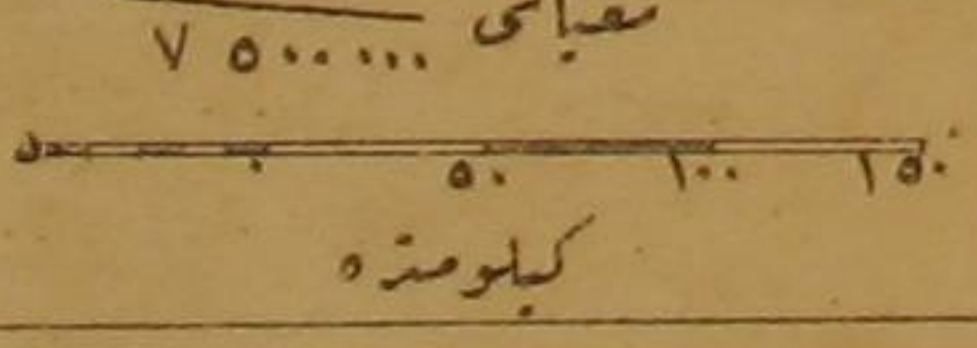 مقیاسی ٧ ٥٠٠ ٠٠٠
٠ ٥٠ ١٠٠ ١٥٠
كیلومتره